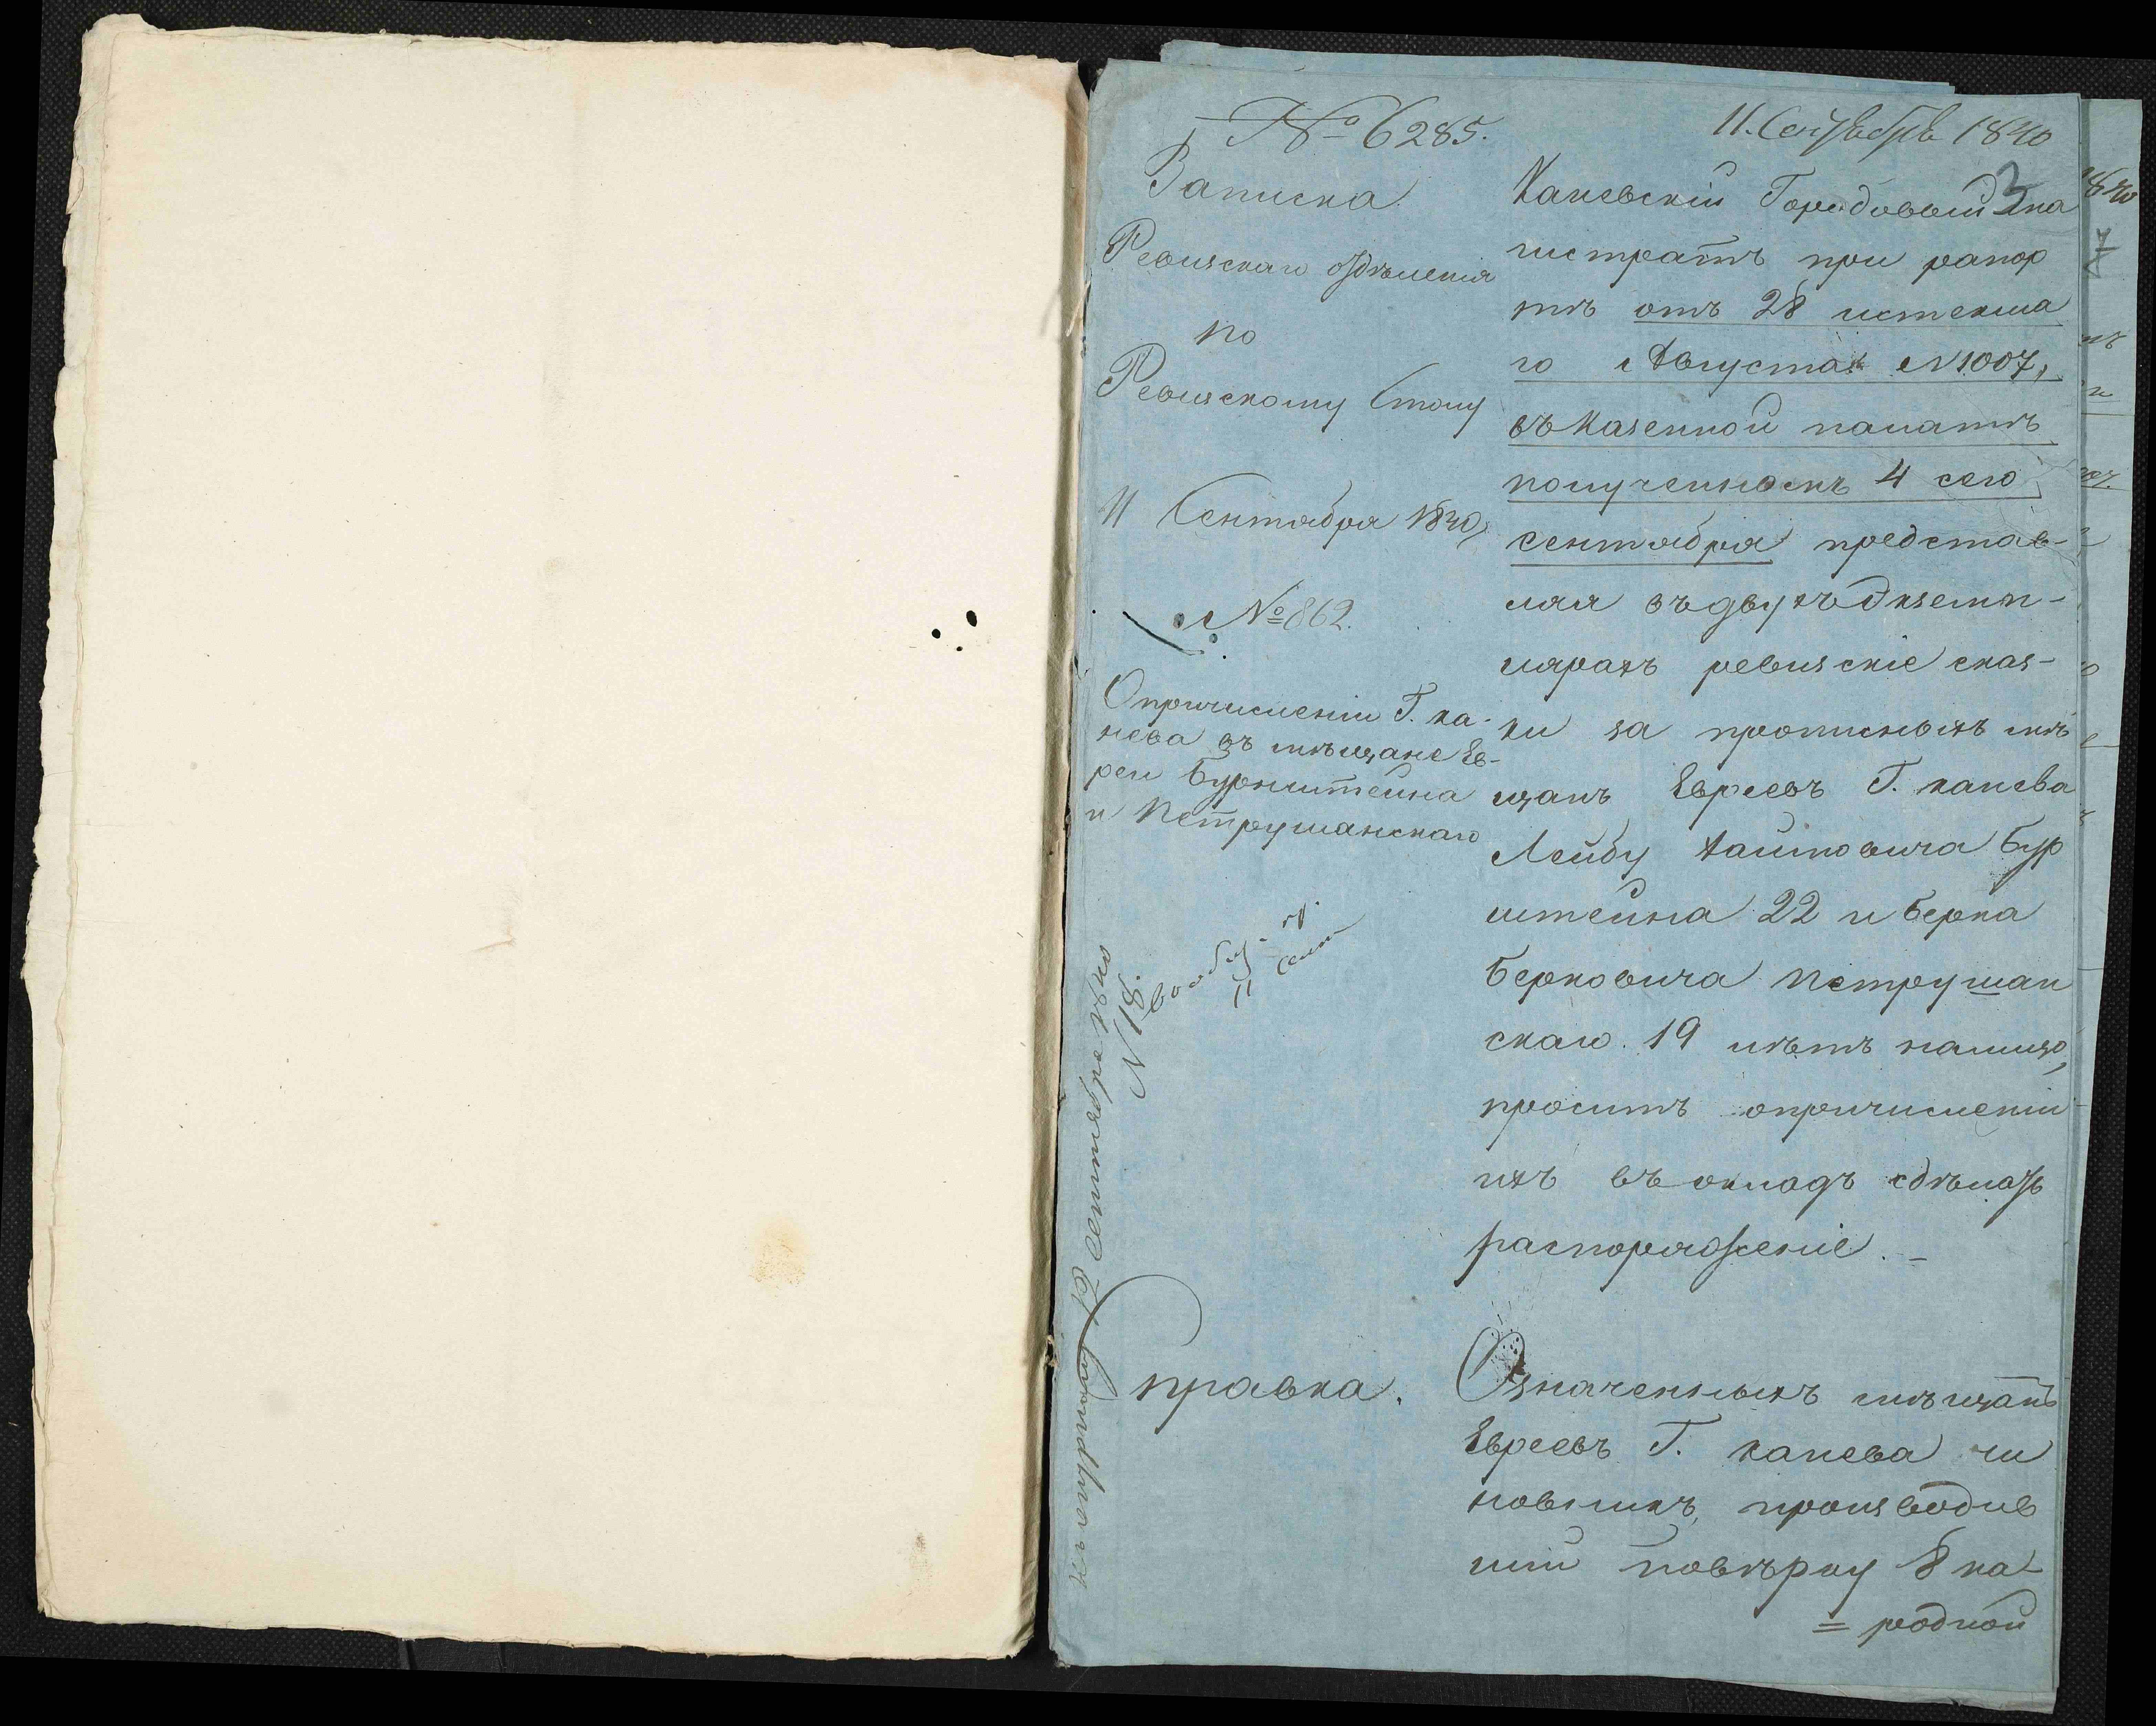 № 6285.
11. Сентября 1840
3
Записка
Ревизскаго отдѣленія
по
Ревизскому Столу
11 Сентября 1840,
№ 862.
О причисленіи Г. Ка-
нева въ мѣщане Ев-
реи Бурштейна
и Петрушанскаго
11 Сент
N 18.
Сентября
Каневскій Городовый Ма
гистратъ при рапор
тѣ отъ 28 истекша
го Августа N 1007,
въ Казенной палатѣ
полученномъ 4 сего
сентября представ-
ляя въ двухъ Экземп-
лярахъ ревизскіе сказ-
ки за прописныхъ мѣ
щанъ Евреевъ Г. Канева
Лейбу Хаймовича Бур
штейна 22 и Берка
Берковича Петрушан
скаго 19 лѣтъ налицо,
проситъ о причисленіи
ихъ въ окладъ сдѣлать
распоряженіе. –
Справка.
Означенныхъ мѣщанъ
Евреевъ Г. Канева чи
новникъ, производив
шій повѣрку 8 на-
= родной